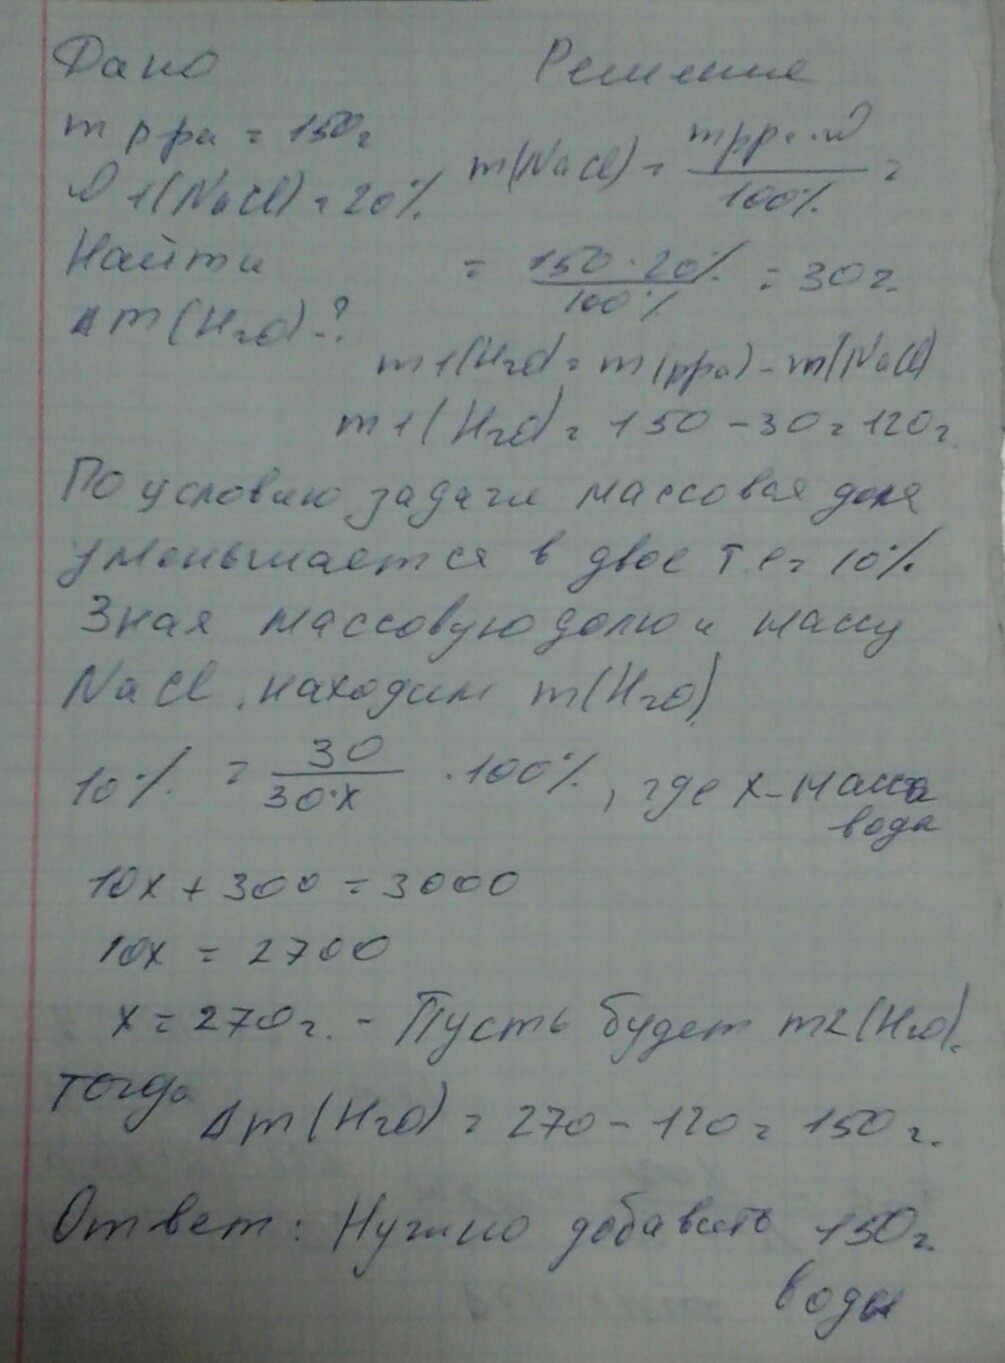 Дано
Решение
m р-ра = 150г
ω1(NaCl) = 20%
m(NaCl) = mрра·ω / 100% =
Найти
= 150·20% / 100% = 30г.
Δm(H2O)-?
m1(H2O) = m(рра) - m(NaCl)
m1(H2O) = 150 - 30 = 120г.
По условию задачи массовая доля
уменьшается в двое т.е = 10%.
Зная массовую долю и массу
NaCl, находим m(H2O)
10% = 30 / 30·x ·100%, где x - масса
вода
10x + 300 = 3000
10x = 2700
x = 270г. - Пусть будет m2(H2O).
тогда
Δm(H2O) = 270 - 120 = 150г.
Ответ: Нужно добавить 150г.
воды